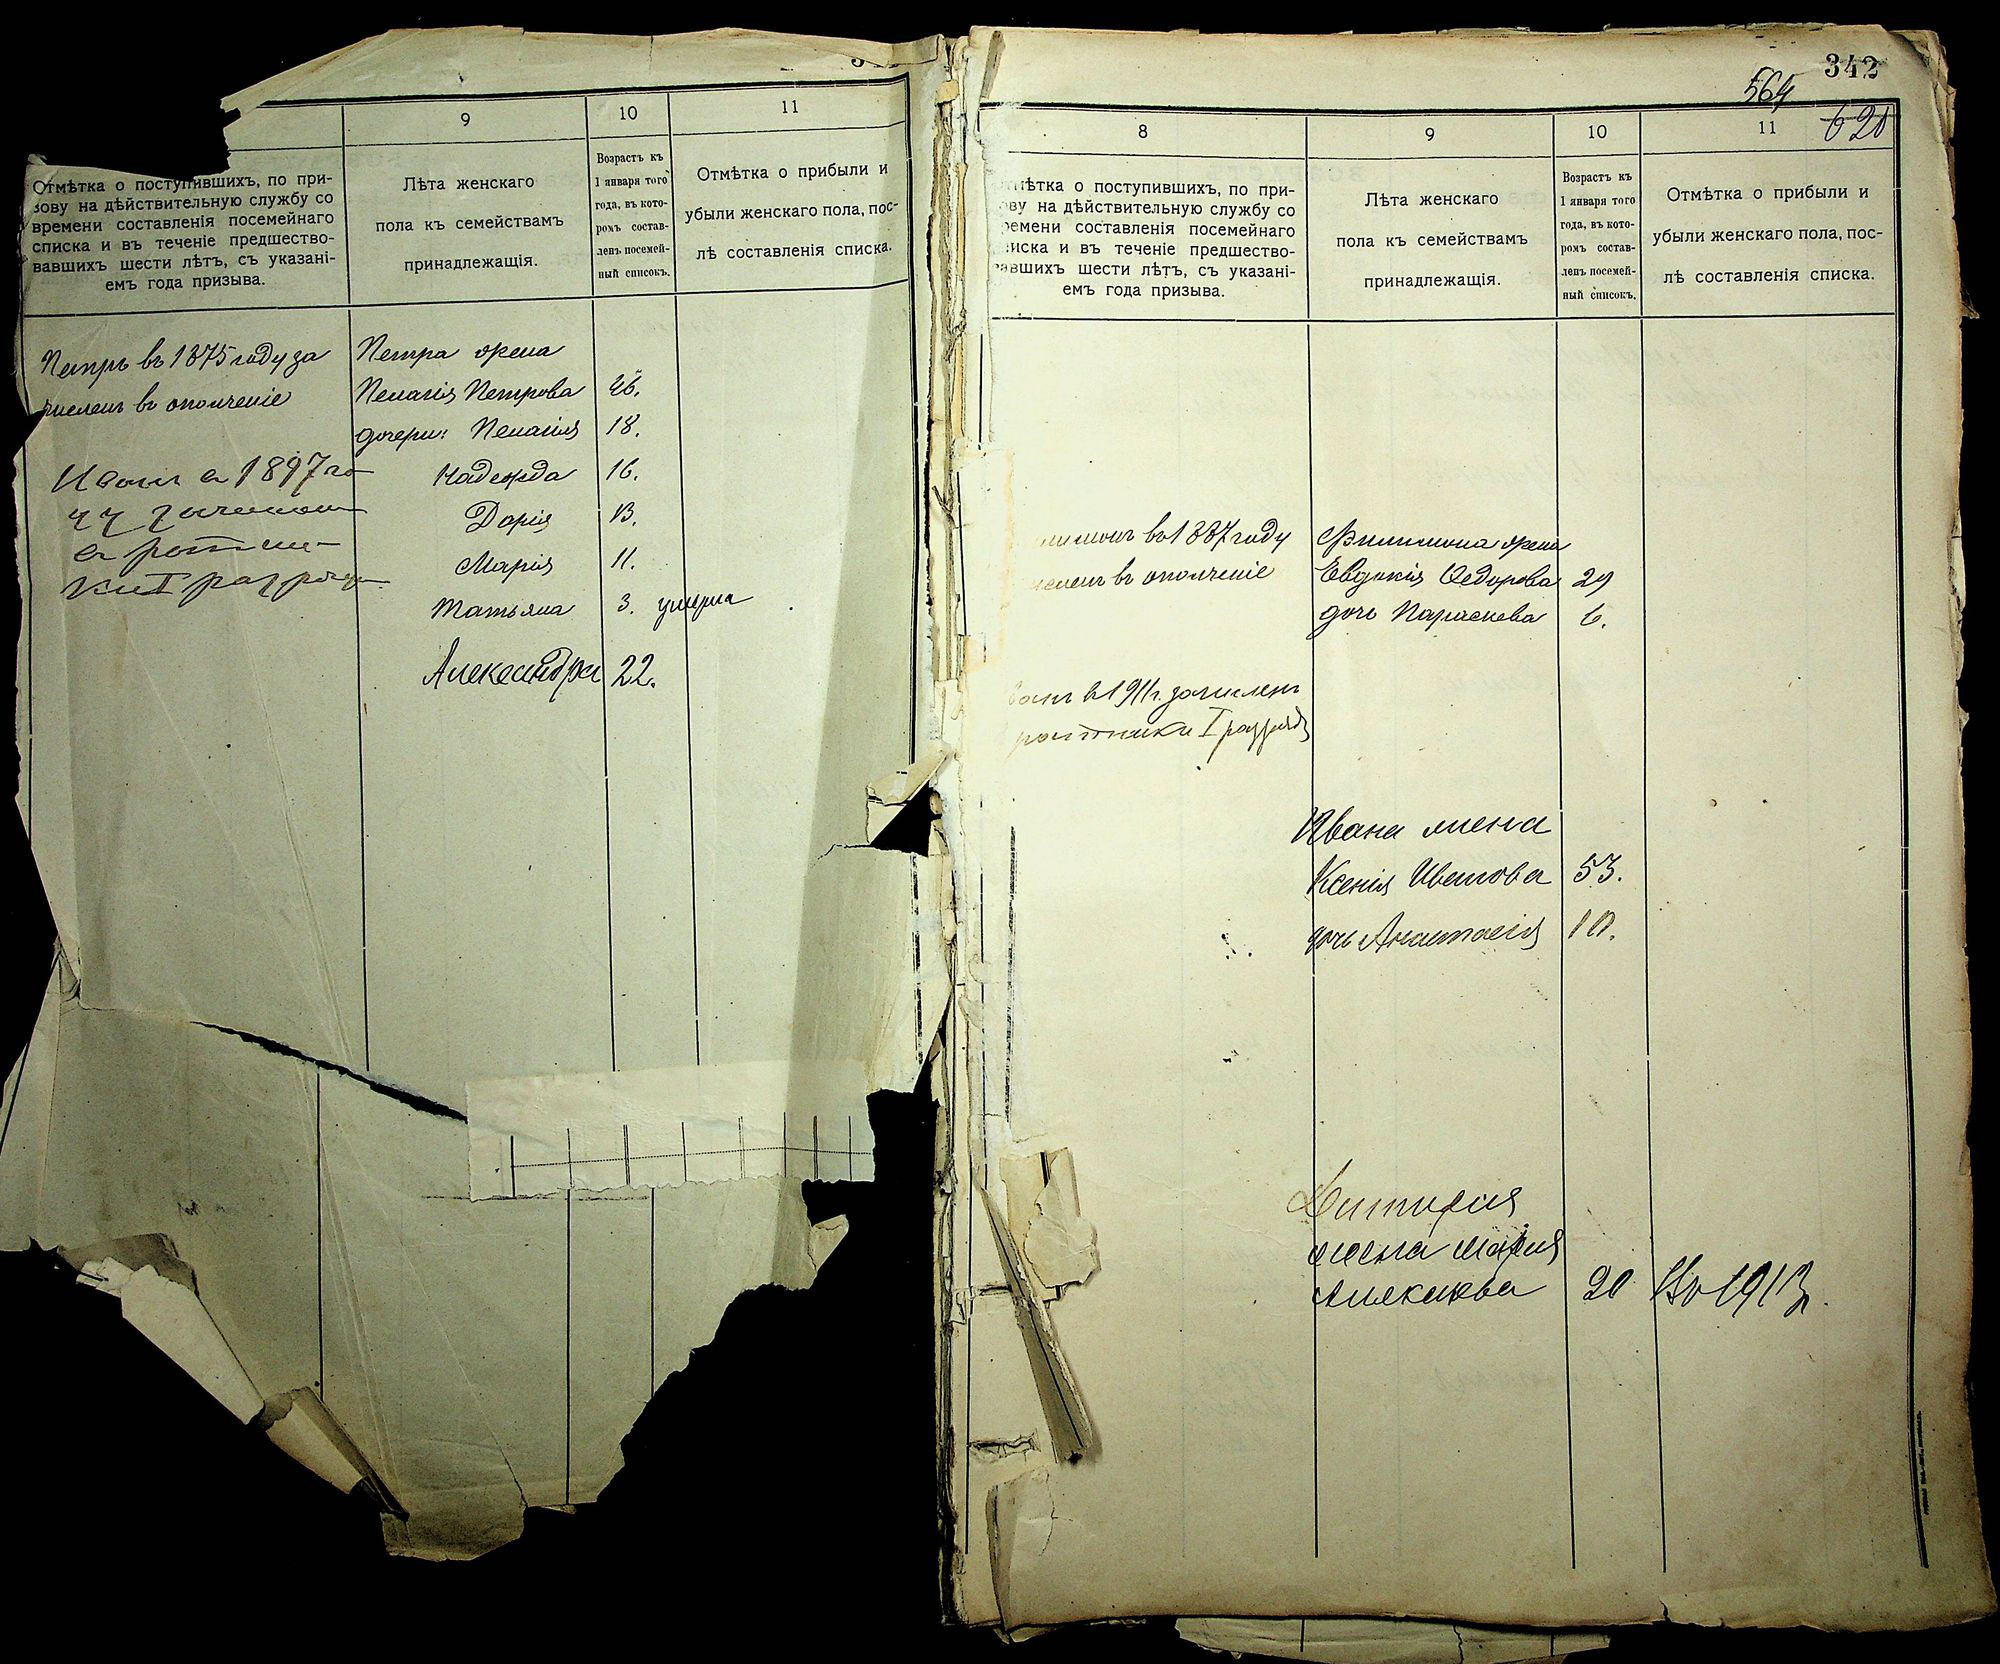 9
10
11
Отмѣтка о поступившихъ, по при-
зову на дѣйствительную службу со
времени составленія посемейнаго
списка и въ теченіе предшество-
вавшихъ шести лѣтъ, съ указані-
емъ года призыва.
Лѣта женскаго
пола къ семействамъ
принадлежащія.
Возрастъ къ
1 января того
года, въ кото-
ромъ состав-
ленъ посемей-
ный списокъ.
Отмѣтка о прибыли и
убыли женскаго пола, пос-
лѣ составленія списка.
Петръ въ 1875 году за
численъ въ ополченіе
Иванъ въ 1897 го
ки I разряда
Петра жена
Пелагія Петрова 46.
дочери: Пелагія 18.
Надежда 16.
Дарія 13.
Марія 11.
Татьяна 3. умерла
Александра 22.
342
564
620
8
9
10
11
мѣтка о поступившихъ, по при-
ову на дѣйствительную службу со
ремени составленія посемейнаго
писка и въ теченіе предшество-
вавшихъ шести лѣтъ, съ указані-
емъ года призыва.
Лѣта женскаго
пола къ семействамъ
принадлежащія.
Возрастъ къ
1 января того
года, въ кото-
ромъ состав-
ленъ посемей-
ный списокъ.
Отмѣтка о прибыли и
убыли женскаго пола, пос-
лѣ составленія списка.
лимонъ въ 1887 году
численъ въ ополченіе
ванъ в 1911 г. зачисленъ
ратники I разряда
Филимона жена
Евдокія Федорова 29
дочь Параскева 6.
Ивана жена
Ксенія Иванова 53.
дочь Анастасія 10.
Дмитрія
жена Марія
Алексѣева 20 1913